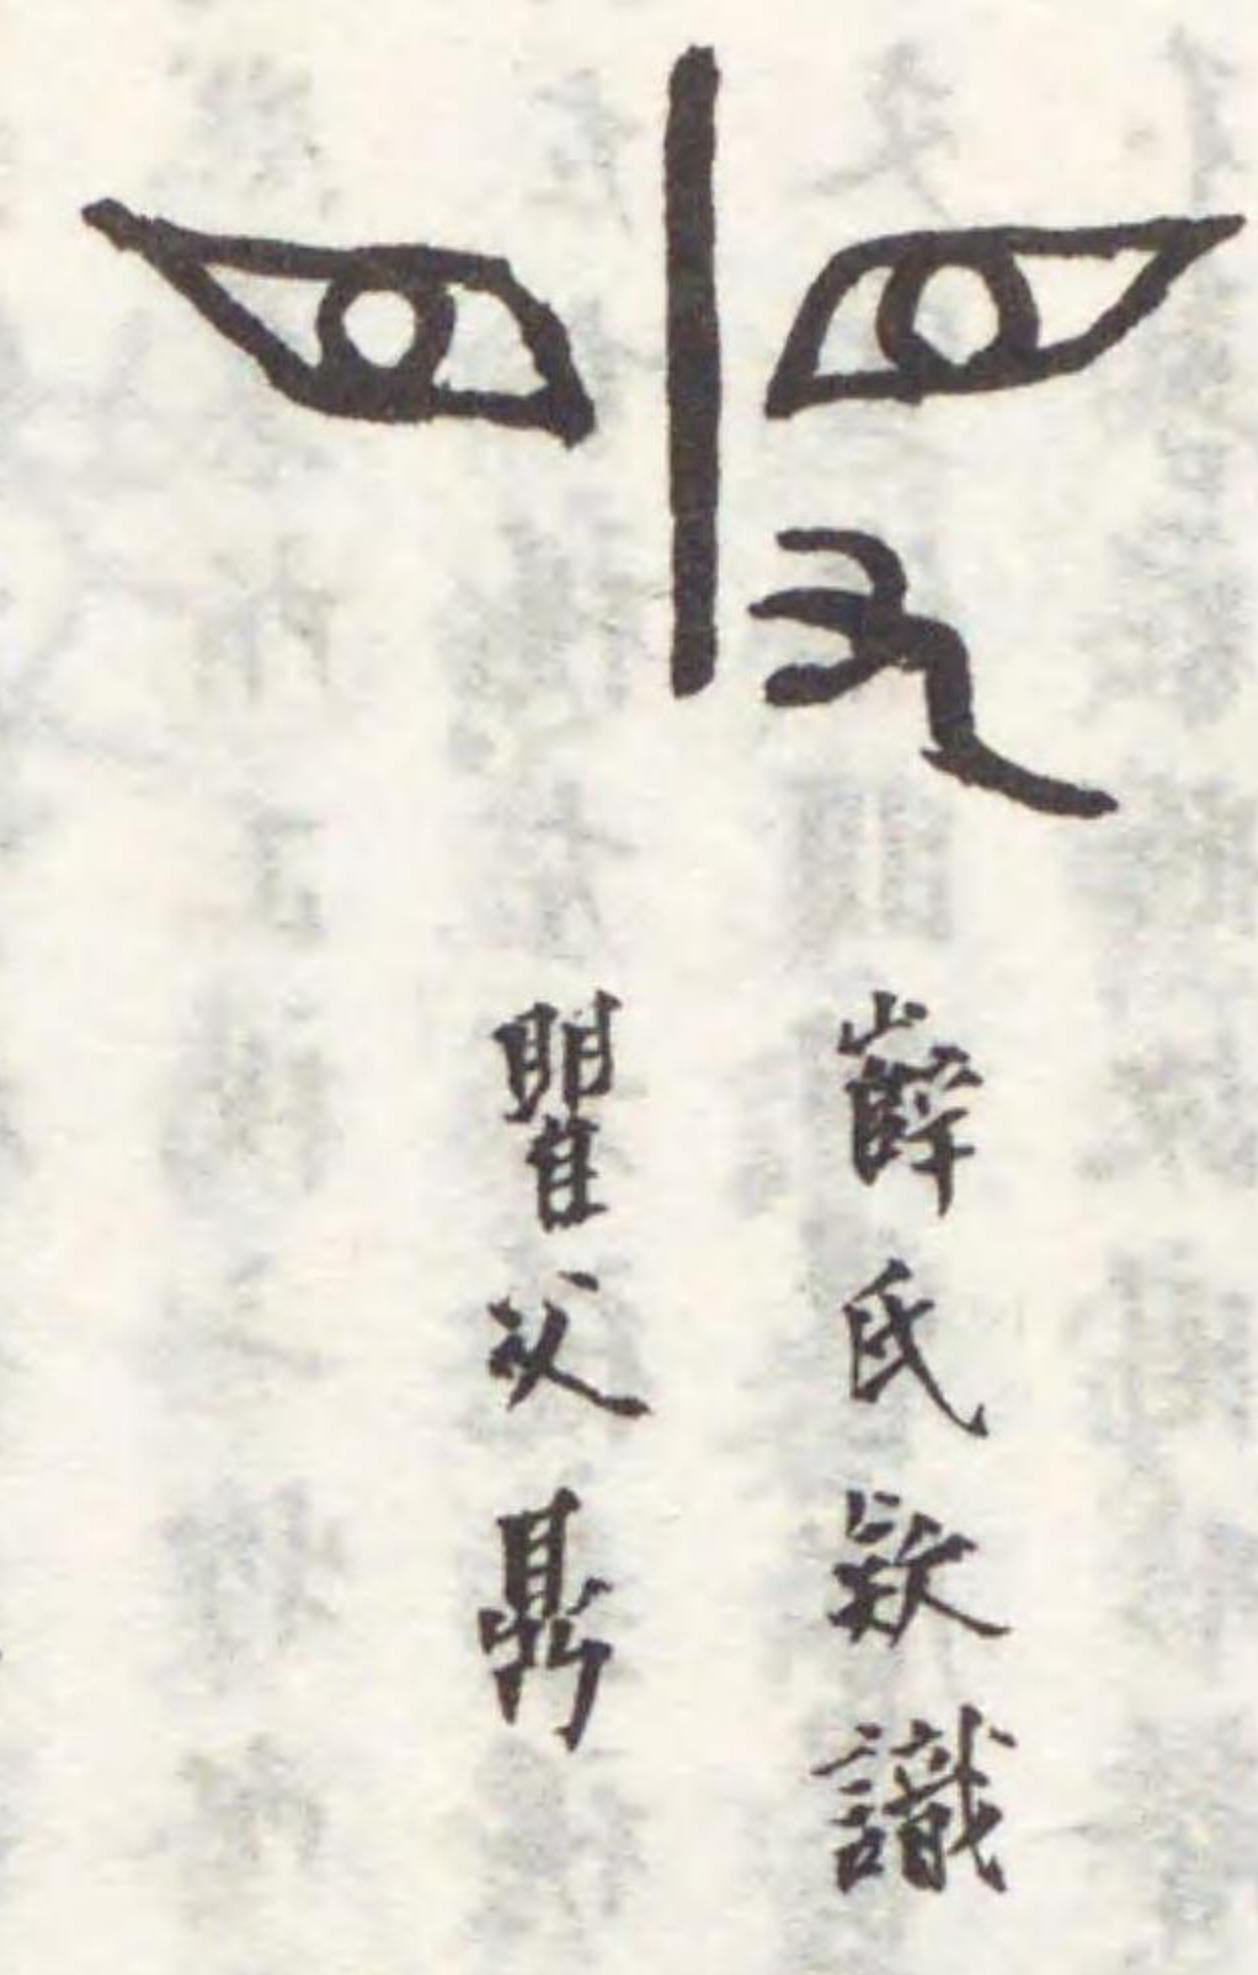 薛氏欵識
瞿父鼎